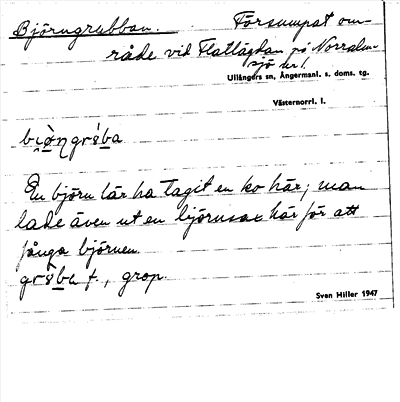 Björngrubban. Försumpat om-
råde vid Flatlägdan på Norralun-
sjö nr 1.
Ullångers sn, Ångermanl. s. doms. tg.
Västernorrl. l.
En björn lär ha tagit en ko här; man
lade även ut en björnsax här för att
fånga björnen
f., grop.
Sven Hiller 1947